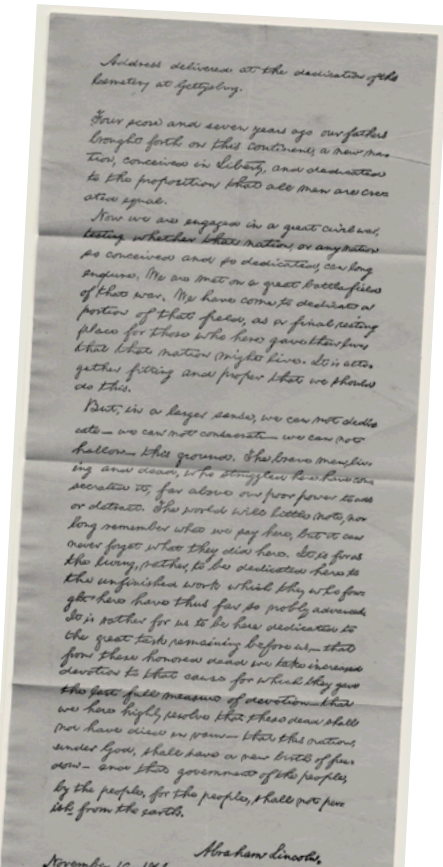 Address delivered at the dedication of the
Cemetery at Gettysburg.
Four score and seven years ago our fathers
brought forth on this continent, a new na-
tion, conceived in Liberty, and dedicated
to the proposition that all men are cre-
ated equal.
Now we are engaged in a great civil war,
testing whether that nation, or any nation
so conceived and so dedicated, can long
endure. We are met on a great battle-field
of that war. We have come to dedicate a
portion of that field, as a final resting
place for those who here gave their lives
that that nation might live. It is alto-
gether fitting and proper that we should
do this.
But, in a larger sense, we can not dedi-
cate — we can not consecrate — we can not
hallow — this ground. The brave men, liv-
ing and dead, who struggled here have con-
secrated it, far above our poor power to add
or detract. The world will little note, nor
long remember what we say here, but it can
never forget what they did here. It is for us
the living, rather, to be dedicated here to
the unfinished work which they who fou-
ght here have thus far so nobly advanced.
It is rather for us to be here dedicated to
the great task remaining before us — that
from these honored dead we take increased
devotion to that cause for which they gave
the last full measure of devotion — that
we here highly resolve that these dead shall
not have died in vain — that this nation,
under God, shall have a new birth of free-
dom — and that government of the people,
by the people, for the people, shall not per-
ish from the earth.
Abraham Lincoln.
November